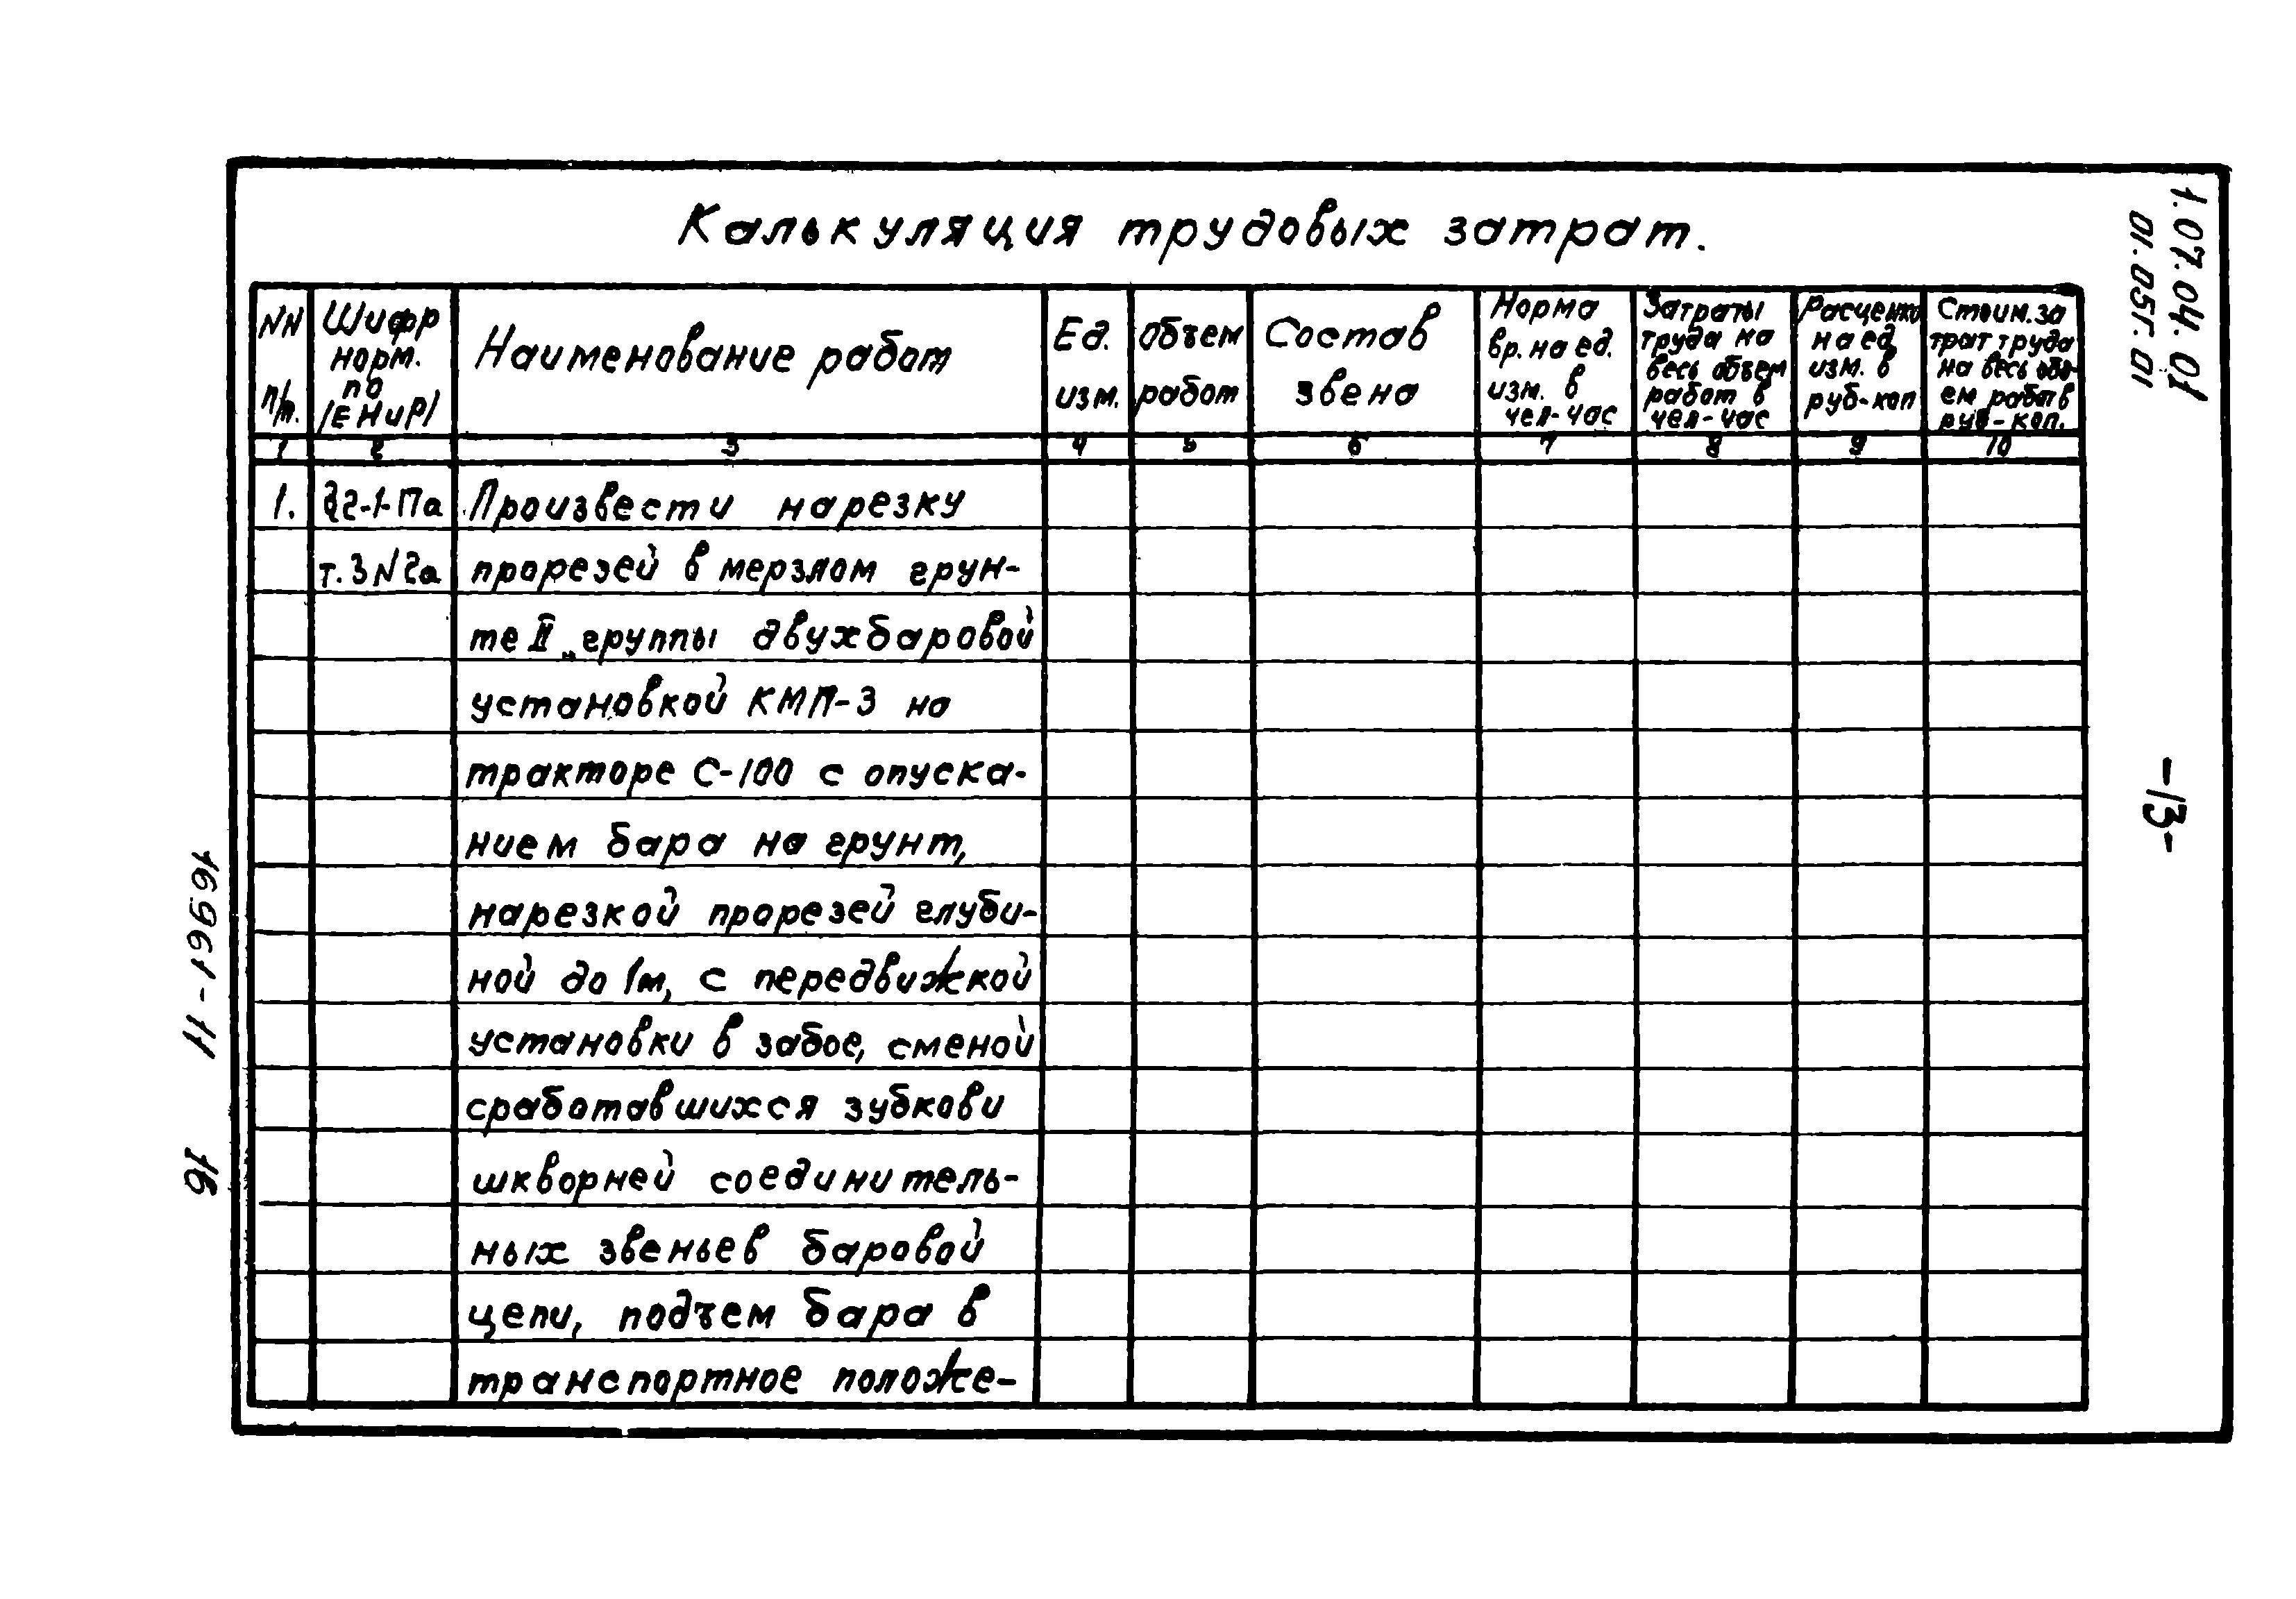 Калькуляция трудовых затрат.
1.07.04.01
01.05г.01
NN п/п.
Шифр норм. по /ЕНиР/
Наименование работ
Ед. изм.
Объем работ
Состав звена
Норма вр. на ед. изм. в чел-час
Затраты труда на весь объем работ в чел-час
Расценка на ед изм. в руб-коп
Стоим. затрат труда на весь объем работ в руб-коп.
1 2 3 4 5 6 7 8 9 10
1. §2-1-Па Произвести нарезку
т.3 N2а прорезей в мерзлом грун-
те II группы двухбаровой
установкой КМП-3 на
тракторе С-100 с опуска-
нием бара на грунт,
нарезкой прорезей глуби-
ной до 1м, с передвижкой
установки в забое, сменой
сработавшихся зубков и
шкворней соединитель-
ных звеньев баровой
цепи, подъем бара в
транспортное положе-
-13-
16961-11
16